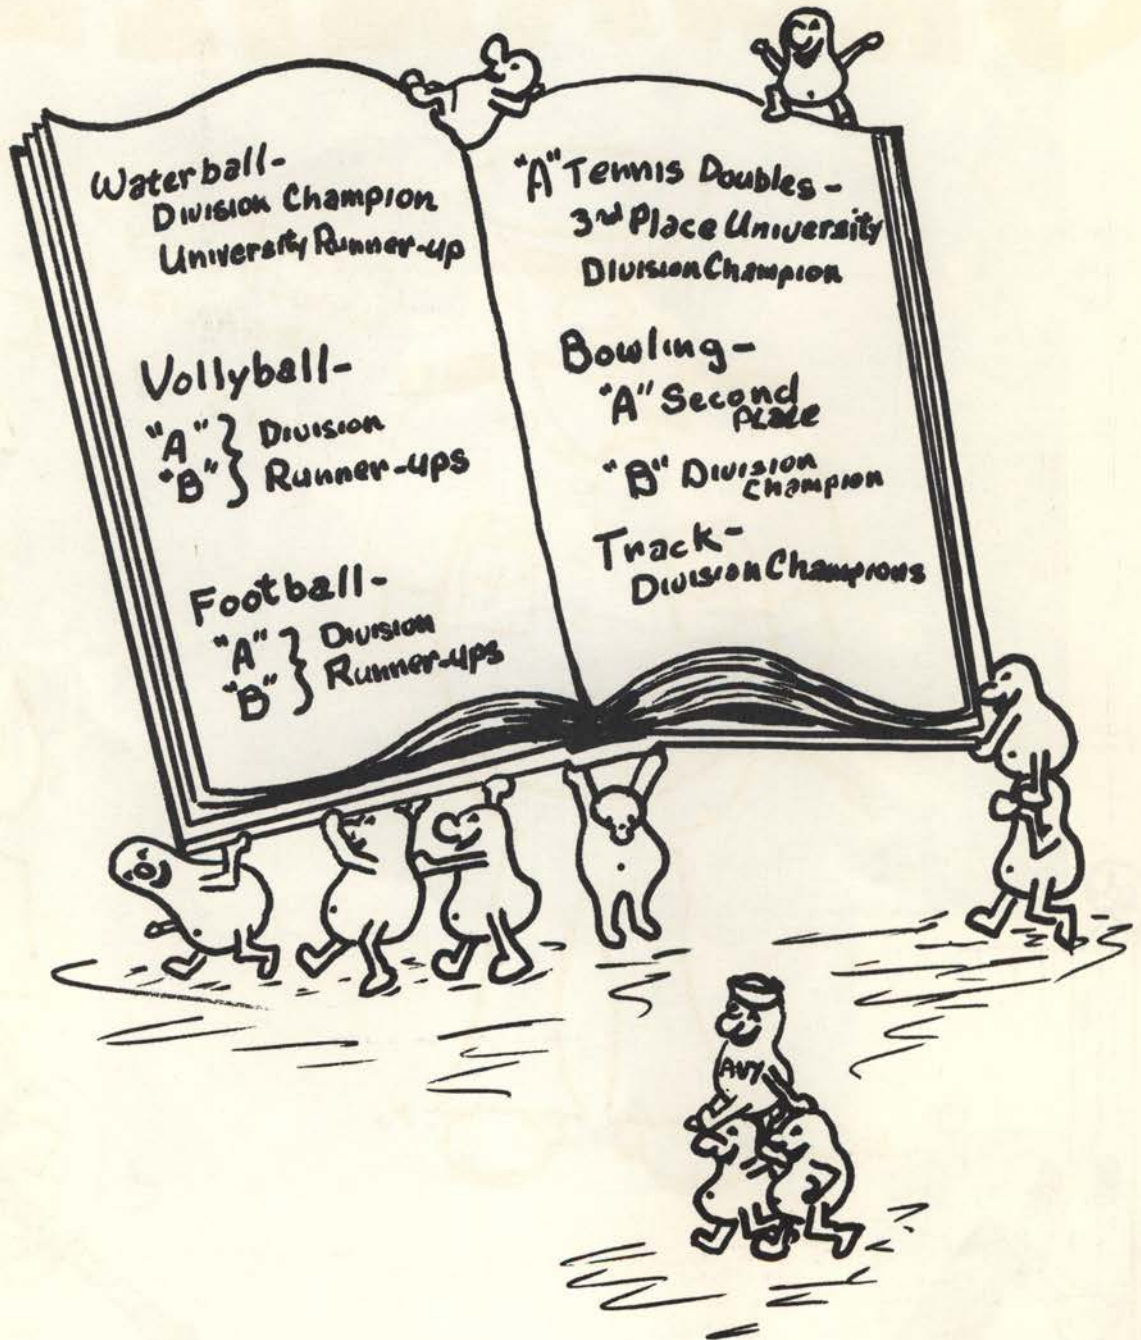 Waterball-
Division Champion
University Runner-up
Vollyball-
"A" } Division
"B" } Runner-ups
Football-
"A" } Division
"B" } Runner-ups
"A" Tennis Doubles-
3rd Place University
Division Champion
Bowling-
"A" Second
Place
"B" Division
Champion
Track-
Division Champions
AVY